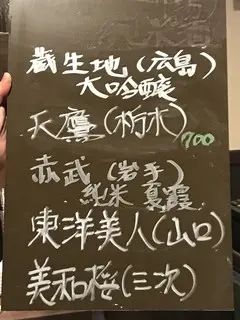 蔵生地(広島)
大吟醸
天鷹(栃木)
700
赤武(岩手)
純米 夏霞
東洋美人(山口)
美和桜(三次)